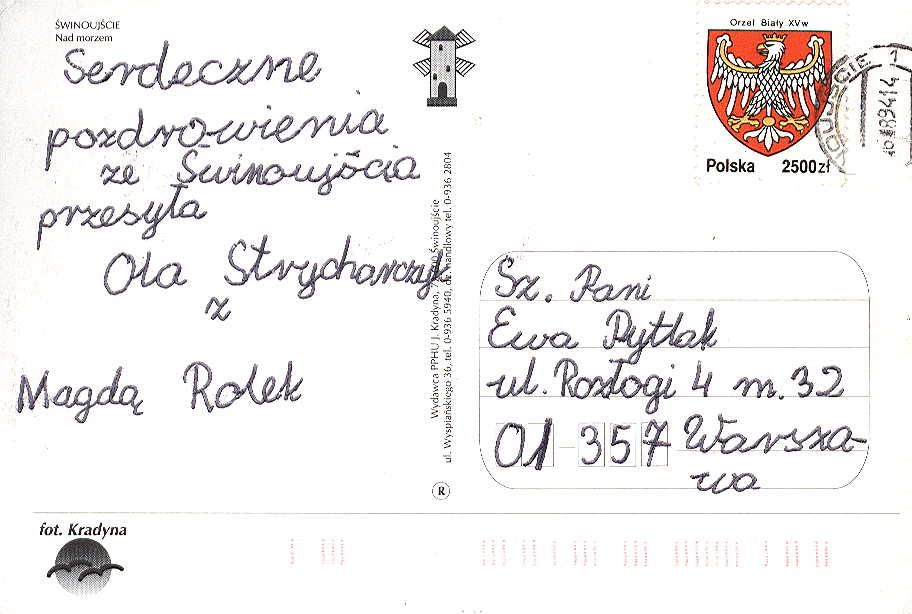 ŚWINOUJŚCIE
Nad morzem
Serdeczne
pozdrowienia
ze Świnoujścia
przesyła
Ola Strycharczyk
z
Magdą Rolek
Wydawca PPHU J. Kradyna,
ul. Wyspiańskiego 36, tel. 0-936 5940, dz. handlowy tel. 0-936 2804
R
Orzeł Biały XVw
Polska 2500zł
Sz. Pani
Ewa Pytlak
ul. Rozłogi 4 m. 32
01-357 Warsza-
wa
fot. Kradyna